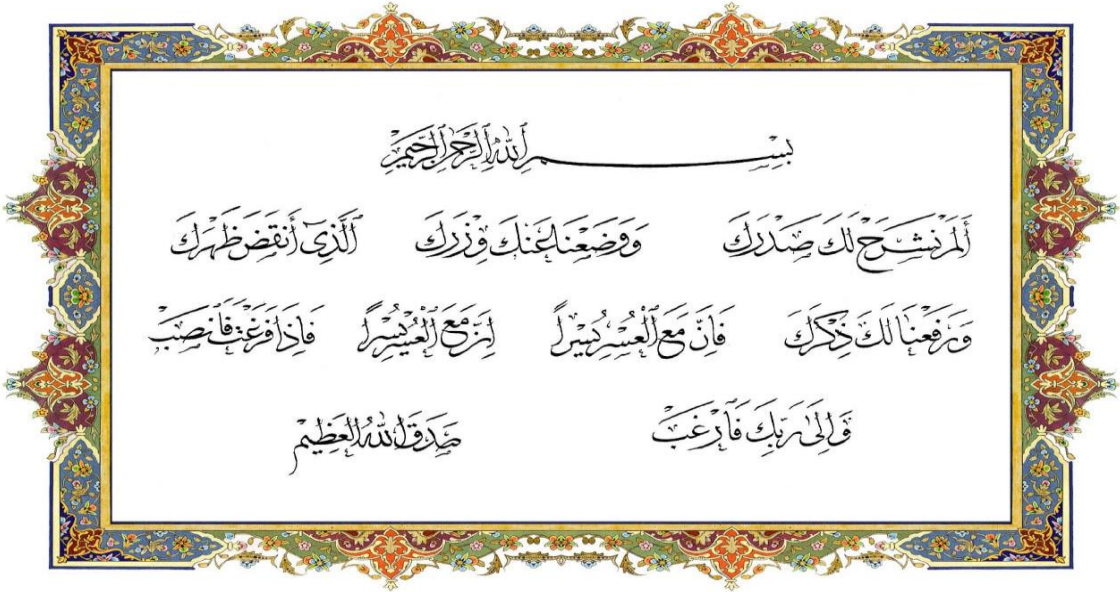 بِسْمِ اللّٰهِ الرَّحْمٰنِ الرَّحِيمِ
أَلَمْ نَشْرَحْ لَكَ صَدْرَكَ وَوَضَعْنَا عَنْكَ وِزْرَكَ ٱلَّذِىٓ أَنقَضَ ظَهْرَكَ
وَرَفَعْنَا لَكَ ذِكْرَكَ فَإِنَّ مَعَ ٱلْعُسْرِ يُسْرًا إِنَّ مَعَ ٱلْعُسْرِ يُسْرًا فَإِذَا فَرَغْتَ فَٱنصَبْ
وَإِلَىٰ رَبِّكَ فَٱرْغَبْ صَدَقَ اللّٰهُ الْعَظِيمُ